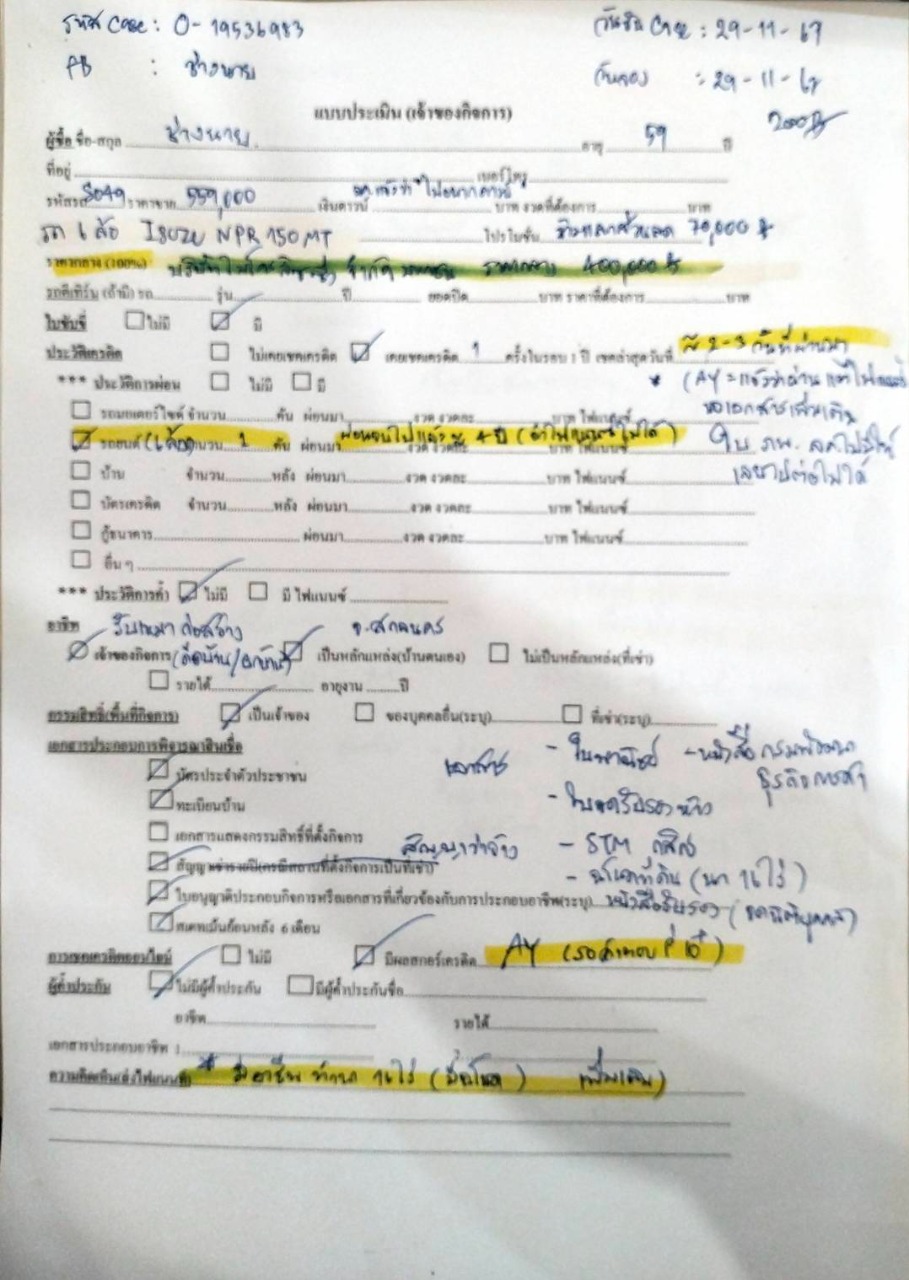 รหัส Case : O-19536983 วันยืน Case : 29-11-67
PB : ช่างนาย วันจอง : 29-11-67
แบบประเมิน (เจ้าของกิจการ) 2000฿
ผู้ซื้อ ชื่อ-สกุล ช่างนาย อายุ 59 ปี
ที่อยู่ เบอร์โทร
รหัสรถ 8049 ราคาขาย 559,000 เงินดาวน์ บาท งวดที่ต้องการ บาท
รถ 6 ล้อ ISUZU NPR 150 MT โปรโมชั่น ส่วนลด 70,000 ฿
ราคากลาง (100%) จำกัด ราคากลาง 400,000 ฿
รถตีเทิร์น (ถ้ามี) รถ รุ่น ปี ยอดปิด บาท ราคาที่ต้องการ บาท
ใบขับขี่ ไม่มี มี
ประวัติเครดิต ไม่เคยเชคเครดิต เคยเชคเครดิต 1 ครั้งในรอบ 1 ปี เชคล่าสุดวันที่ 2-3 วันที่ผ่านมา
*** ประวัติการผ่อน ไม่มี มี * (AY = แจ้งว่าผ่าน แต่ไฟแนนซ์
รถมอเตอร์ไซค์ จำนวน คัน ผ่อนมา งวด งวดละ บาท ไฟแนนซ์ ขอเอกสารเพิ่มเติม
รถยนต์ (6 ล้อ) จำนวน 1 คัน ผ่อนมา ผ่อนจบไปแล้ว 4 ปี (จำไฟแนนซ์ไม่ได้) งวด งวดละ บาท ไฟแนนซ์ ใบ ภพ. ลค ไม่มี
บ้าน จำนวน หลัง ผ่อนมา งวด งวดละ บาท ไฟแนนซ์ เลยไปต่อไม่ได้
บัตรเครดิต จำนวน หลัง ผ่อนมา งวด งวดละ บาท ไฟแนนซ์
กู้ธนาคาร ผ่อนมา งวด งวดละ บาท ไฟแนนซ์
อื่น ๆ
*** ประวัติการค้ำ ไม่มี มี ไฟแนนซ์
อาชีพ รับเหมาก่อสร้าง จ.สกลนคร
เจ้าของกิจการ เป็นหลักแหล่ง(บ้านตนเอง) ไม่เป็นหลักแหล่ง(ที่เช่า)
รายได้ อายุงาน ปี
กรรมสิทธิ์(พื้นที่กิจการ) เป็นเจ้าของ ของบุคคลอื่น(ระบุ) ที่เช่า(ระบุ)
เอกสารประกอบการพิจารณาสินเชื่อ - ใบพาณิชย์ - หนังสือ กรมพัฒนา
บัตรประจำตัวประชาชน เอกสาร ธุรกิจการค้า
ทะเบียนบ้าน
เอกสารแสดงกรรมสิทธิ์ที่ตั้งกิจการ
สัญญาเช่ารายปี(กรณีสถานที่ตั้งกิจการเป็นที่เช่า) สัญญาว่าจ้าง - STM กสิกร
- โฉนดที่ดิน (นา 16 ไร่)
ใบอนุญาติประกอบกิจการหรือเอกสารที่เกี่ยวข้องกับการประกอบอาชีพ(ระบุ) หนังสือรับรอง (จดนิติบุคคล)
สเตทเม้นก้อนหลัง 6 เดือน
การเชคเครดิตออนไลน์ ไม่มี มีผลสกอร์เครดิต AY
ผู้ค้ำประกัน ไม่มีผู้ค้ำประกัน มีผู้ค้ำประกันชื่อ
อาชีพ รายได้
เอกสารประกอบอาชีพ :
ความคิดเห็น(ส่งไฟแนนซ์) * มีอาชีพ ทำนา 16 ไร่ (มีโฉนด) เพิ่มเติม